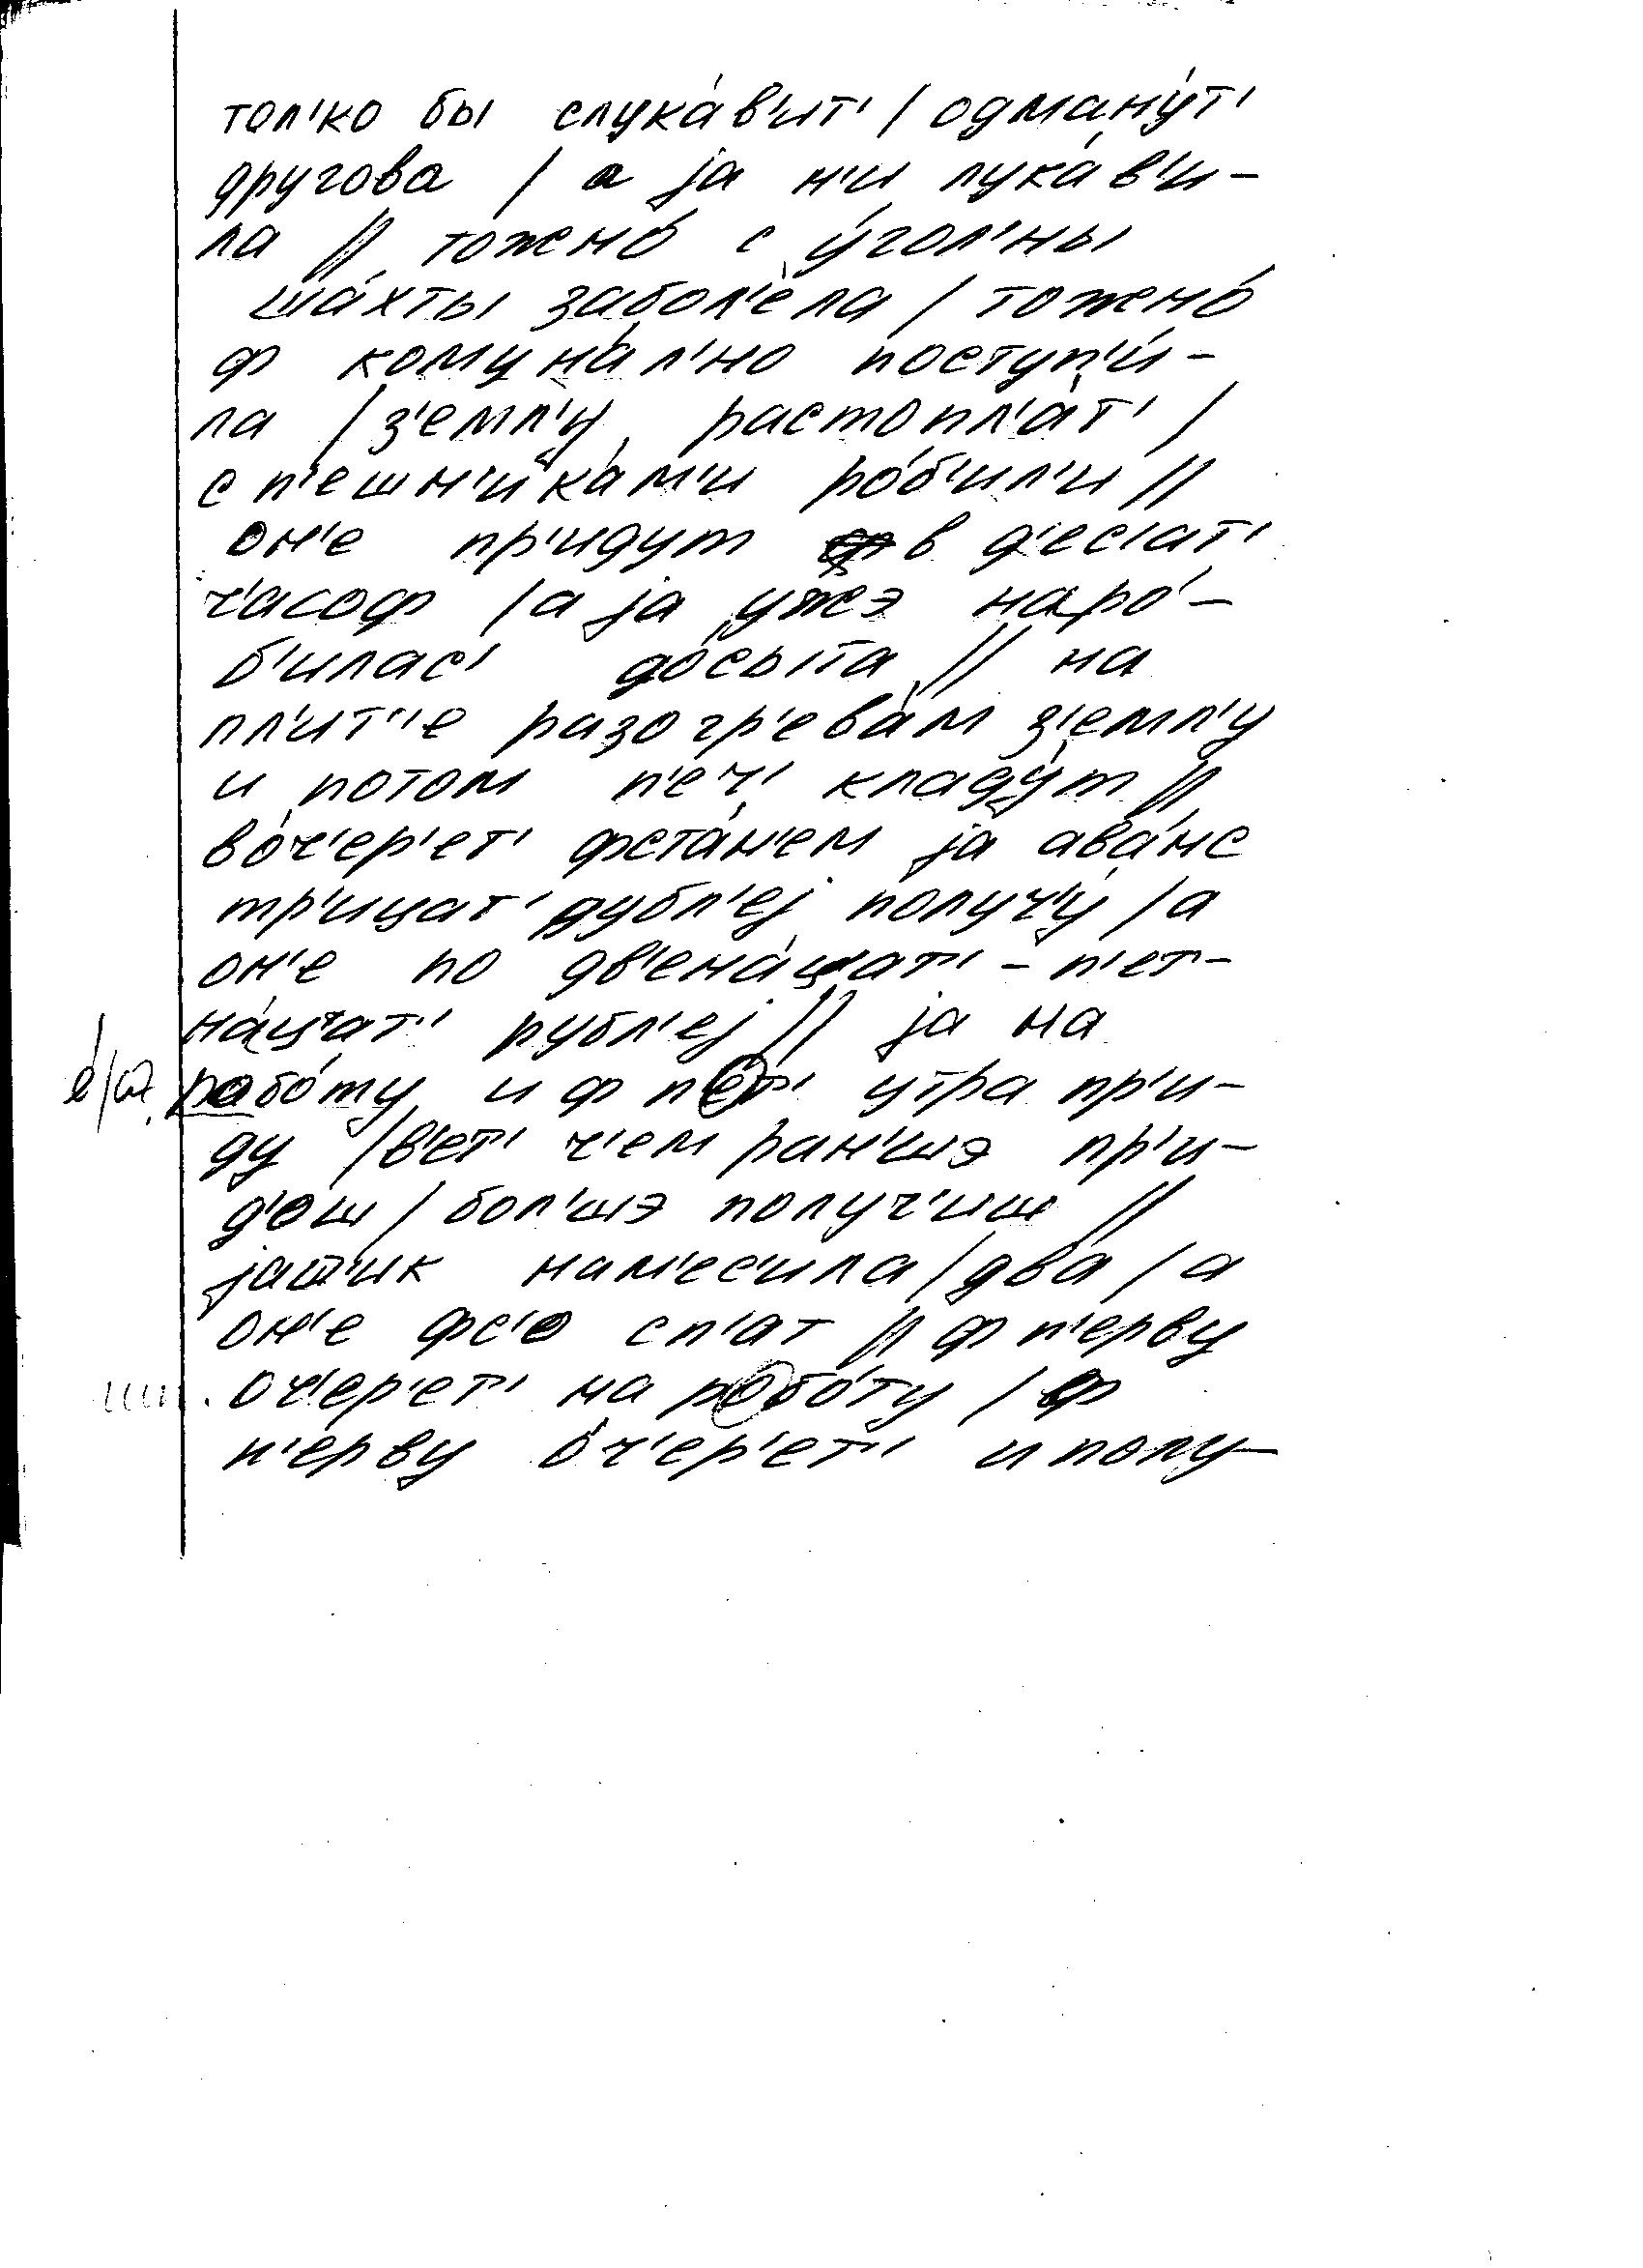 тол'ко бы слука́в'ит' / одману́т'
другова / а jа н'и лука́в'и-
ла // тожено́ с у́гол'ны
ша́хты забол'е́ла / тожено́
ф комуна́л'но поступ'и́-
ла / з'емл'у́ растопл'а́т' /
с п'ешн'и́кам'и ро́б'ил'и //
он'е пр'идут в д'ес'ат'
ч'асоф / а jа ужэ наро́-
б'илас' до́сыта // на
пл'ит'е разогр'ева́м з'емл'у
и потом п'еч' кладу́т //
во́ч'ер'ет' фста́н'ем jа ава́нс
тр'ицат' рубл'еj получ'у́ / а
он'е по дв'ена́цат' - п'ет-
на́цат' рубл'еj // jа на
робо́ту и ф п'ет' утра пр'и-
ду / в'ет' ч'ем ран'шэ пр'и-
д'ош / бол'шэ получ'иш //
jашик нам'ес'ила / два / а
он'е фс'о сп'ат // ф п'ерву
оч'ер'ет' на робо́ту / ф
п'ерву о́ч'ер'ет' и полу-